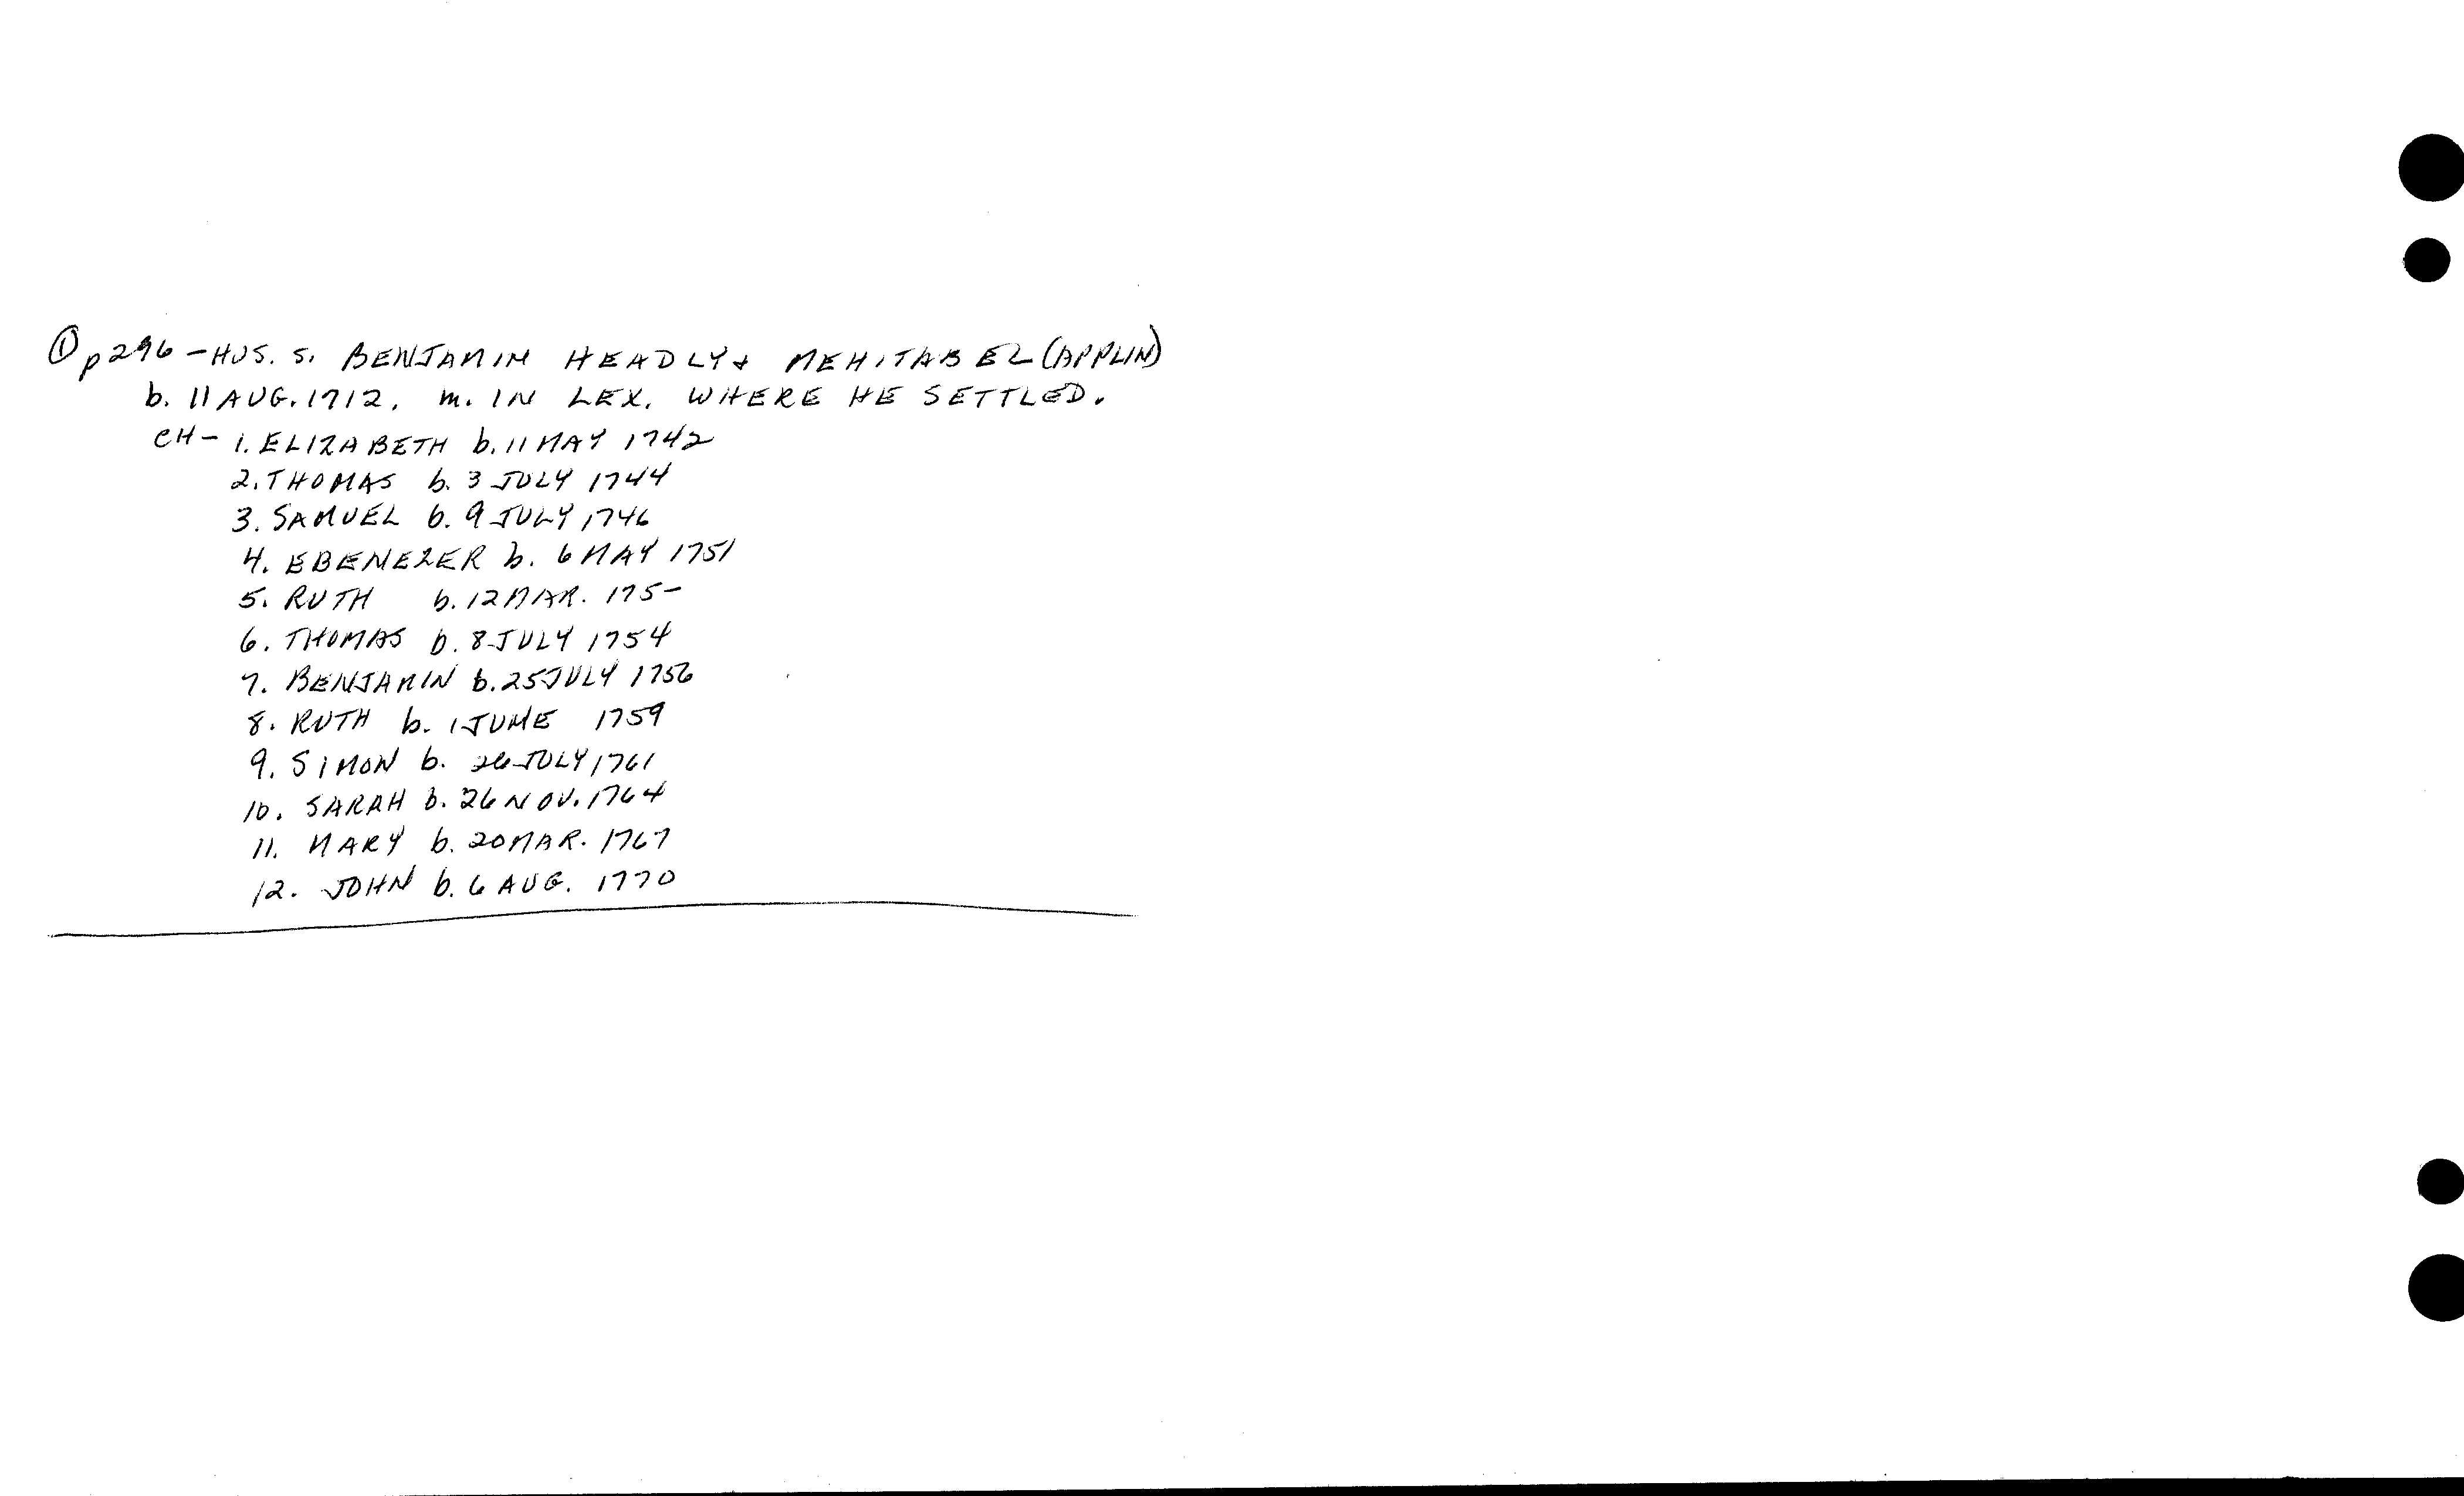 ① p 296 - HUS. S. BENJAMIN HEADLY + MEHITABEL (APPLIN)
b. 11 AUG. 1712. m. IN LEX. WHERE HE SETTLED.
CH - 1. ELIZABETH b. 11 MAY 1742
2. THOMAS b. 3 JULY 1744
3. SAMUEL b. 9 JULY 1746
4. EBENEZER b. 6 MAY 1751
5. RUTH b. 12 MAR. 175-
6. THOMAS b. 8 JULY 1754
7. BENJAMIN b. 25 JULY 1756
8. RUTH b. 1 JUNE 1759
9. SIMON b. 26 JULY 1761
10. SARAH b. 26 NOV. 1764
11. MARY b. 20 MAR. 1767
12. JOHN b. 6 AUG. 1770